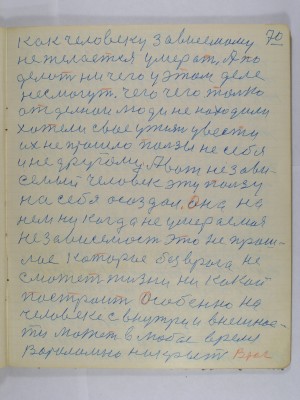 70
как человеку зависемому
не желается умерать, А по
делать ни чего у этом деле
несмогут, чего чего только
от делной люди не находили
хотели свае ужизни увести
их не пришло ползы не себя
и не другому, А вот не зави-
семый человек эту ползу
на себя осоздал, она на
нем ни когда не умераемая
независемост это не праш-
лае каторае без врага не
сможет жизни ни какой
построит Особенно на
человеке с внутри и внешнос-
ти может в любое время
накрыет Враг